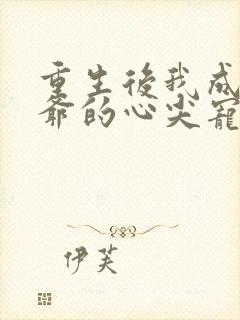 重生後我成
爺的心尖寵
伊芙